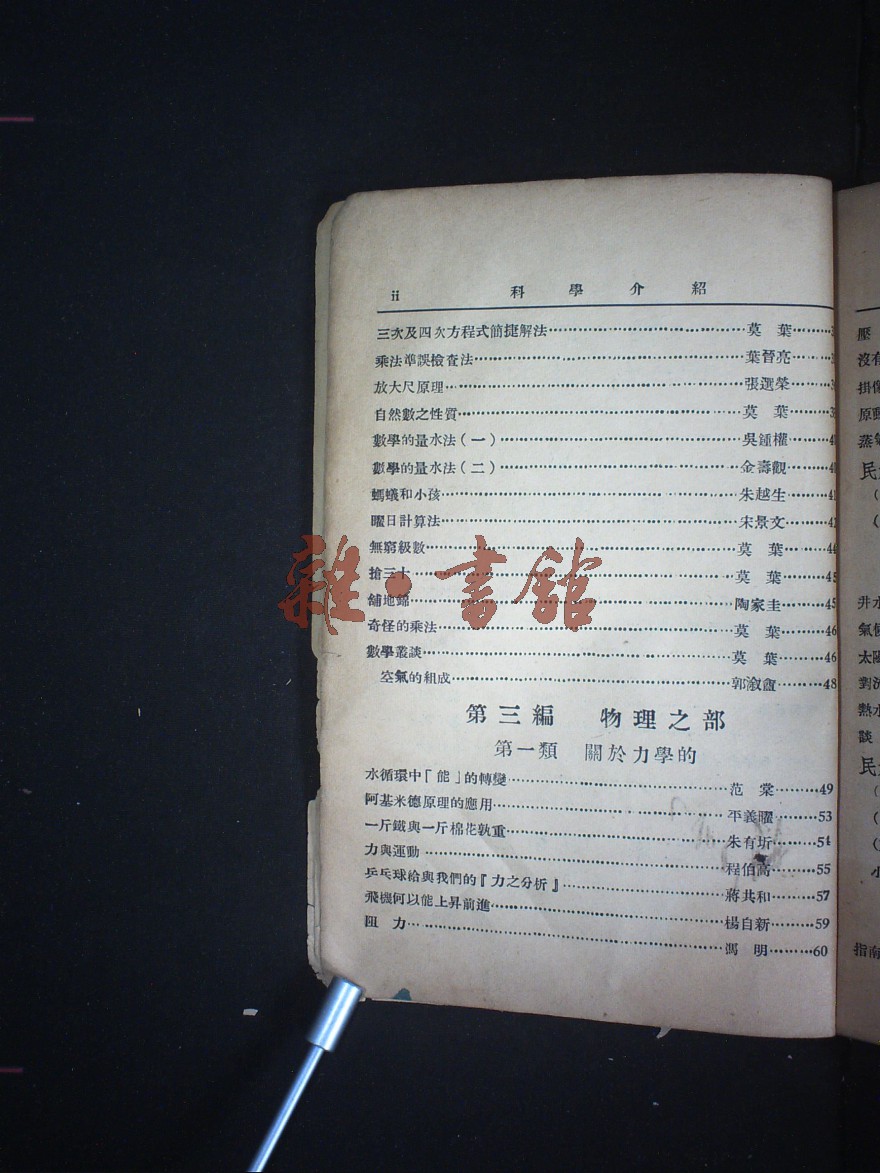 ii 科學介紹
三次及四次方程式簡捷解法……莫葉……3
乘法準誤檢查法……葉晉亮……3
放大尺原理……張選榮……3
自然數之性質……莫葉……3
數學的量水法(一)……吳鍾權……4
數學的量水法(二)……金壽觀……4
螞蟻和小孩……朱越生……41
曜日計算法……宋景文……41
無窮級數……莫葉……44
搶三十……莫葉……45
舖地錦……陶家圭……45
奇怪的乘法……莫葉……46
數學叢談……莫葉……46
空氣的組成……郭……48
第三編 物理之部
第一類 關於力學的
水循環中「能」的轉變……范棠……49
阿基米德原理的應用……平義曜……53
一斤鐵與一斤棉花孰重……朱有圻……54
力與運動……程伯高……55
乒乓球給與我們的『力之分析』……蔣共和……57
飛機何以能上昇前進……楊自新……59
阻力……馮明……60
雜·書館
壓
沒有
掛像
原動
蒸氣
民
(
(
井水
氣候
太陽
對流
熱水
談
民
(
(
(
小
指南